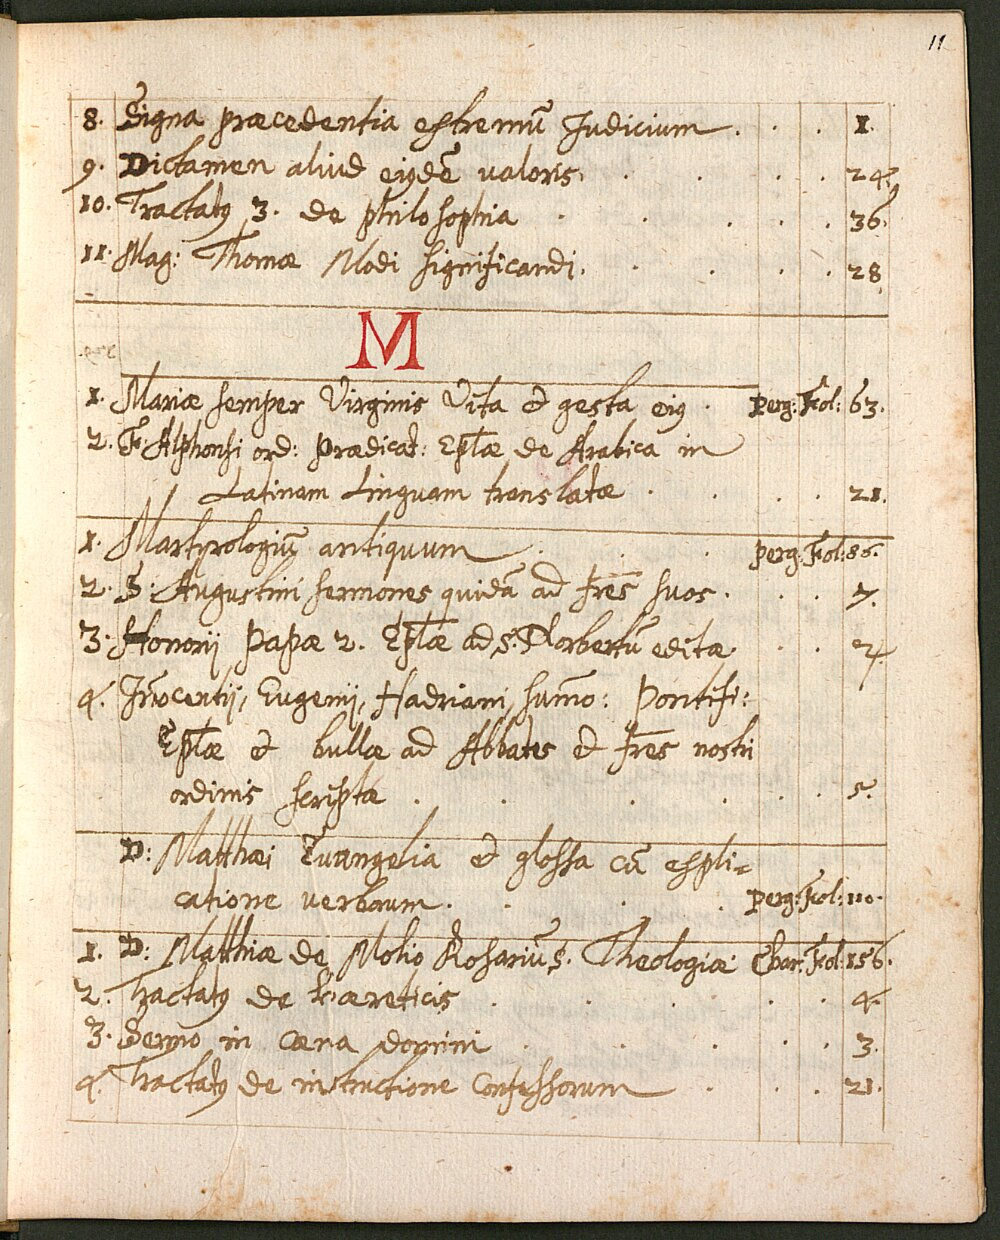 11
8. Signa præcedentia extremū Iudicium . . . 1.
9. Dictamen aliud eiusdē valoris . . . . 24.
10. Tractatꝰ 3. de philosophia . . . . 36.
11. Mag: Thomæ Modi significandi . . . . 28.
M
1. Mariæ semper Virginis Vita et gesta eiꝰ . Perg: Fol: 63.
2. F. Alphonsi ord: Prædicat: Ep̄læ de Arabica in
Latinam Linguam translatæ . . . . 21.
1. Martyrologiū antiquum . . . perg: Fol: 86.
2. S. Augustini sermones quidā ad fr̄es suos . . . 7.
3. Honorij Papæ 2. Ep̄læ ad S. Norbertū editæ . . . 4.
4. Iñocentij, Eugenij, Hadriani, sum̄o: Pontifi:
Ep̄læ et bullæ ad Abbates et fr̄es nostri
ordinis scriptæ . . . . . . 5.
D: Matthæi Euangelia et glossa cū expli=
catione verborum . . . . Perg: Fol: 110.
1. D: Matthiæ de Mohio Rosariū S. Theologiæ Char. Fol: 156.
2. Tractatꝰ de hæreticis . . . . . . 4.
3. Sermo in cæna domini . . . . . 3.
4. Tractatꝰ de instructione Confessorum . . . 21.